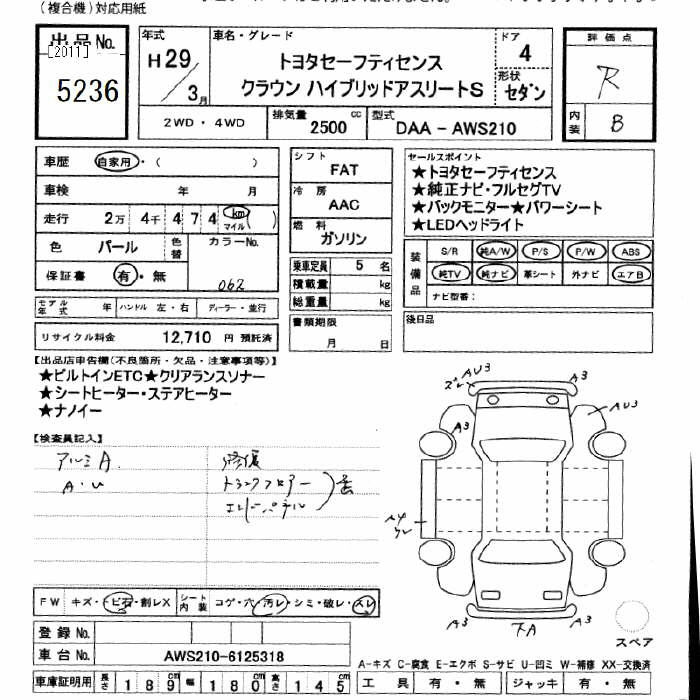 (複合機)対応用紙
出品No.
[2011]
5236
年式
H29
3月
車名・グレード
トヨタセーフティセンス
クラウン ハイブリッドアスリートS
ドア
4
形状
セダン
評価点
R
内装
B
2WD・4WD
排気量
2500
cc
型式
DAA - AWS210
車歴
自家用・( )
車検
年 月
走行
2万 4千 4 7 4
km
マイル
( )
色
パール
色替
カラーNo.
062
保証書
有・無
シフト
FAT
冷房
AAC
燃料
ガソリン
乗車定員
5 名
積載量
kg
総重量
kg
書類期限
月 日
セールスポイント
★トヨタセーフティセンス
★純正ナビ・フルセグTV
★バックモニター★パワーシート
★LEDヘッドライト
装備品
S/R 純A/W P/S P/W ABS
純TV 純ナビ 革シート 外ナビ エアB
ナビ型番:
後日品
モデル年式
年
ハンドル 左・右
ディーラー・並行
リサイクル料金
12,710 円 預託済
【出品店申告欄(不良箇所・欠品・注意事項等)】
★ビルトインETC★クリアランスソナー
★シートヒーター・ステアヒーター
★ナノイー
【検査員記入】
アルミA.
A・U
修復
トランクフロアー
エンドパネル
AU3
A3
A3
AU3
A4
A3
A3
スペア
FW
キズ・トビ石・割レX
シート内装
コゲ・穴・汚レ・シミ・破レ・スレ
登録No.
車台No.
AWS210-6125318
A-キズ C-腐食 E-エクボ S-サビ U-凹ミ W-補修 XX-交換済
車庫証明用
長さ
189
cm
幅
180
cm
高さ
145
cm
工具
有・無
ジャッキ
有・無